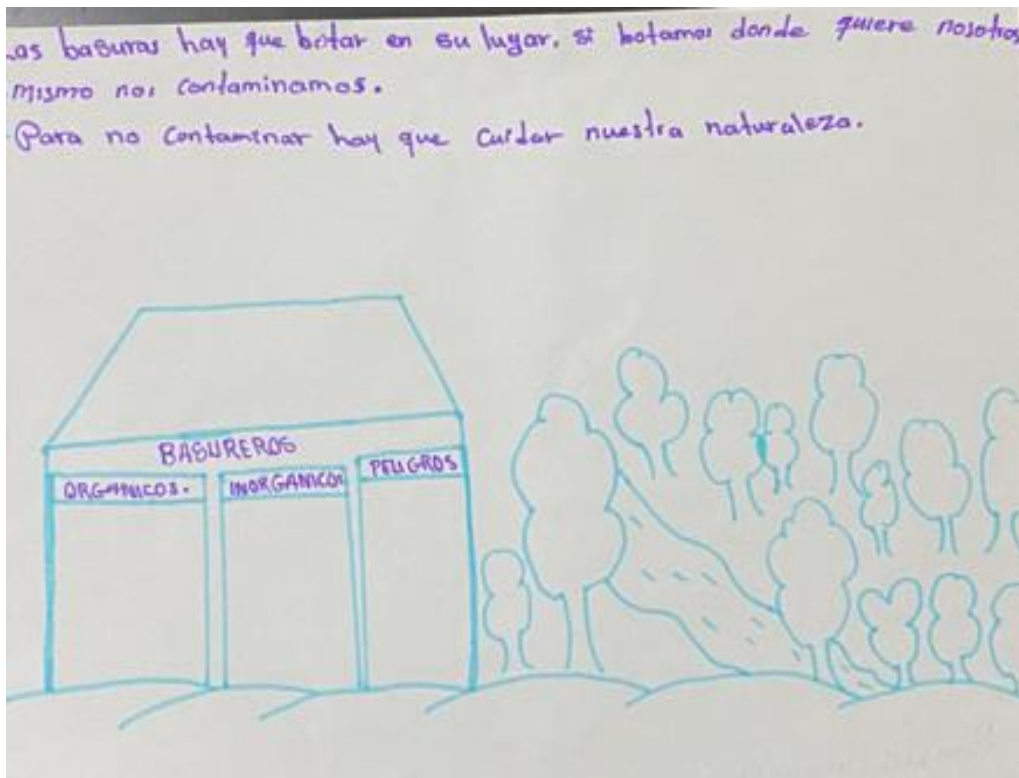 Las basuras hay que botar en su lugar. si botamos donde quiere nosotros
mismo nos contaminamos.
Para no contaminar hay que cuidar nuestra naturaleza.
BASUREROS
ORGANICOS.
INORGANICOS
PELIGROS